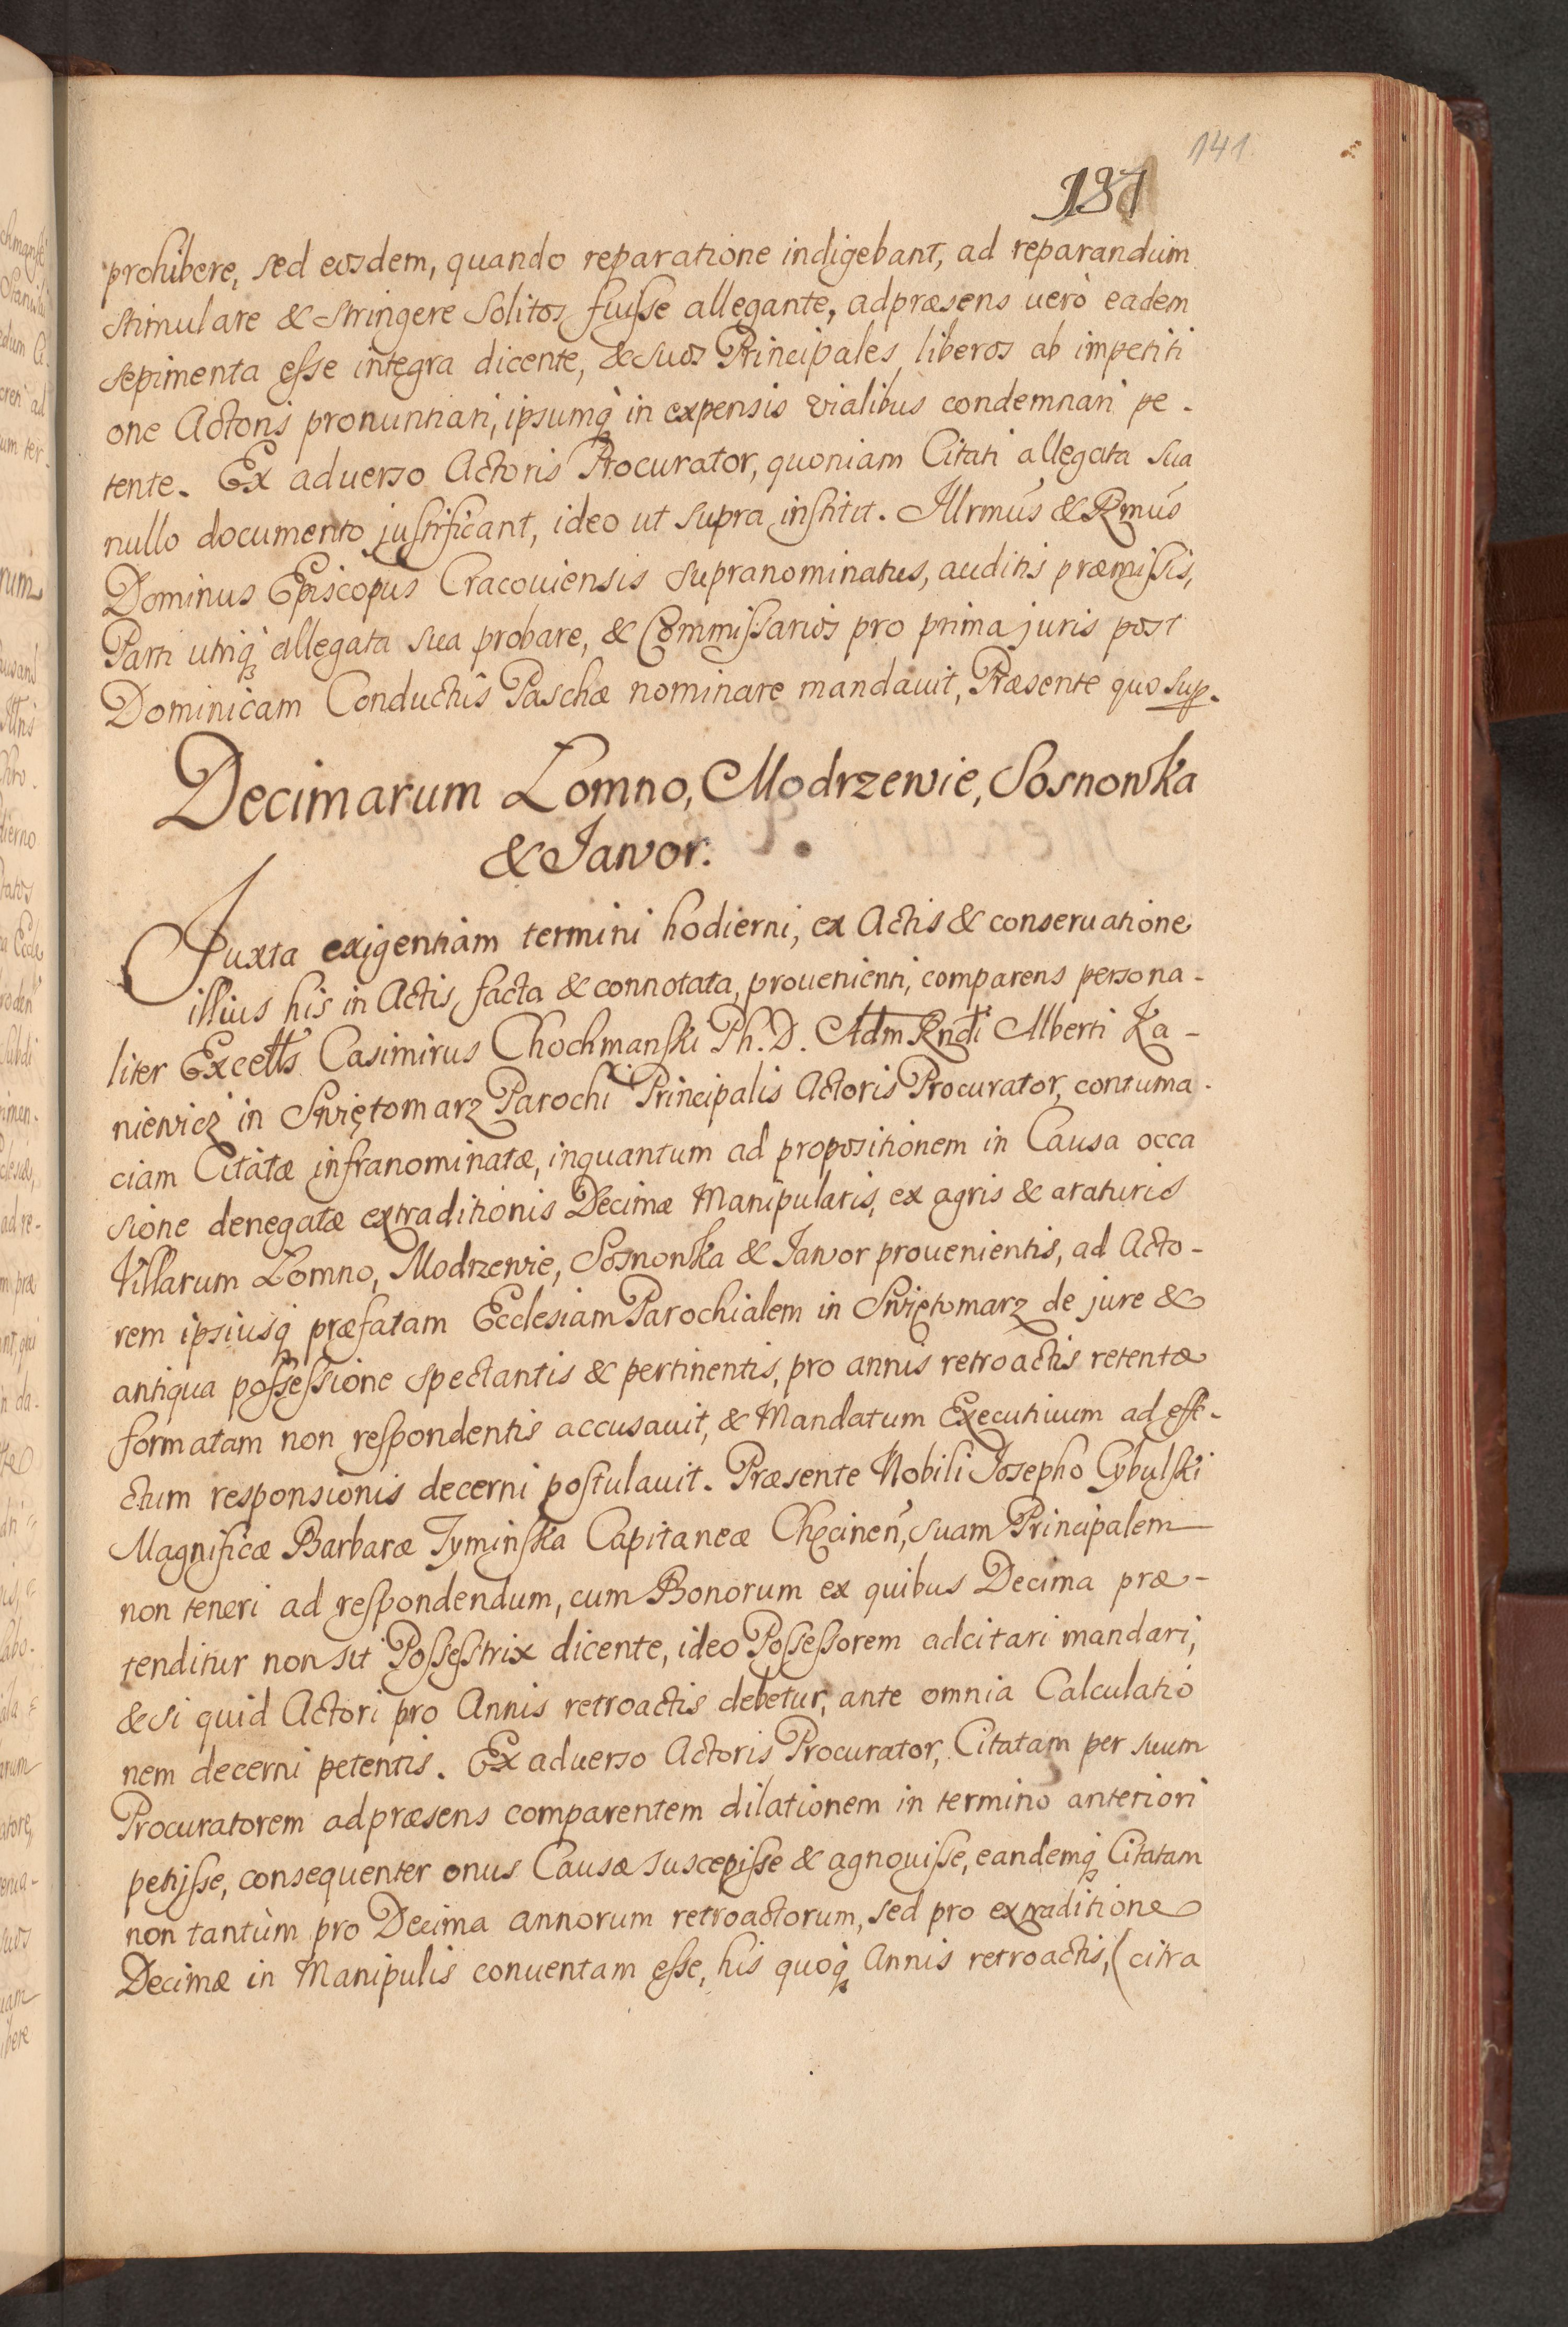 141.
137
prohibere, sed eosdem, quando reparatione indigebant, ad reparandum
stimulare & stringere solitos fuisse allegante, adpræsens uerò eadem
sepimenta esse integra dicente, & suos Principales liberos ab impetiti
one Actoris pronuntiari, ipsumq́ in expensis vialibus condemnari pe-
tente. Ex aduerso Actoris Procurator, quoniam Citati allegata sua
nullo documento justificant, ideo ut supra institit. Illrmús & Rmús
Dominus Episcopus Cracouiensis supranominatus, auditis præmissis,
Parti utriq́ allegata sua probare, & Commissarios pro prima juris post
Dominicam Conductûs Paschæ nominare mandauit, Præsente quo sup.
Decimarum Łomno, Modrzewie, Sosnowka
& Jawor.
Juxta exigentiam termini hodierni, ex Actis & conseruatione
illius his in Actis facta & connotata, prouenienti, comparens persona-
liter Excells Casimirus Chochmanski Ph. D. Adm Rndi Alberti Ka-
niewicz in Swiętomarz Parochi Principalis Actoris Procurator, contuma-
ciam Citatæ infranominatæ, inquantum ad propositionem in Causa occa
sione denegatæ extraditionis Decimæ Manipularis, ex agris & araturis
Villarum Łomno, Modrzewie, Sosnowka & Jawor prouenientis, ad Acto-
rem ipsiusq́ præfatam Ecclesiam Parochialem in Swiętomarz de jure &
antiqua possessione spectantis & pertinentis, pro annis retroactis retentæ
formatam non respondentis accusauit, & Mandatum Executiuum ad effe-
ctum responsionis decerni postulauit. Præsente Nobili Josepho Cybulski
Magnificæ Barbaræ Tyminska Capitaneæ Chęcineń, suam Principalem
non teneri ad respondendum, cum Bonorum ex quibus Decima præ-
tenditur non sit Possestrix dicente, ideo Possessorem adcitari mandari,
& si quid Actori pro Annis retroactis debetur, ante omnia Calculatio
nem decerni petentis. Ex aduerso Actoris Procurator, Citatam per suum
Procuratorem adpræsens comparentem dilationem in termino anteriori
petijsse, consequenter onus Causæ suscepisse & agnouisse, eandemq́ Citatam
non tantùm pro Decima annorum retroactorum, sed pro extraditione
Decimæ in Manipulis conuentam esse, his quoq́ Annis retroactis, (citra